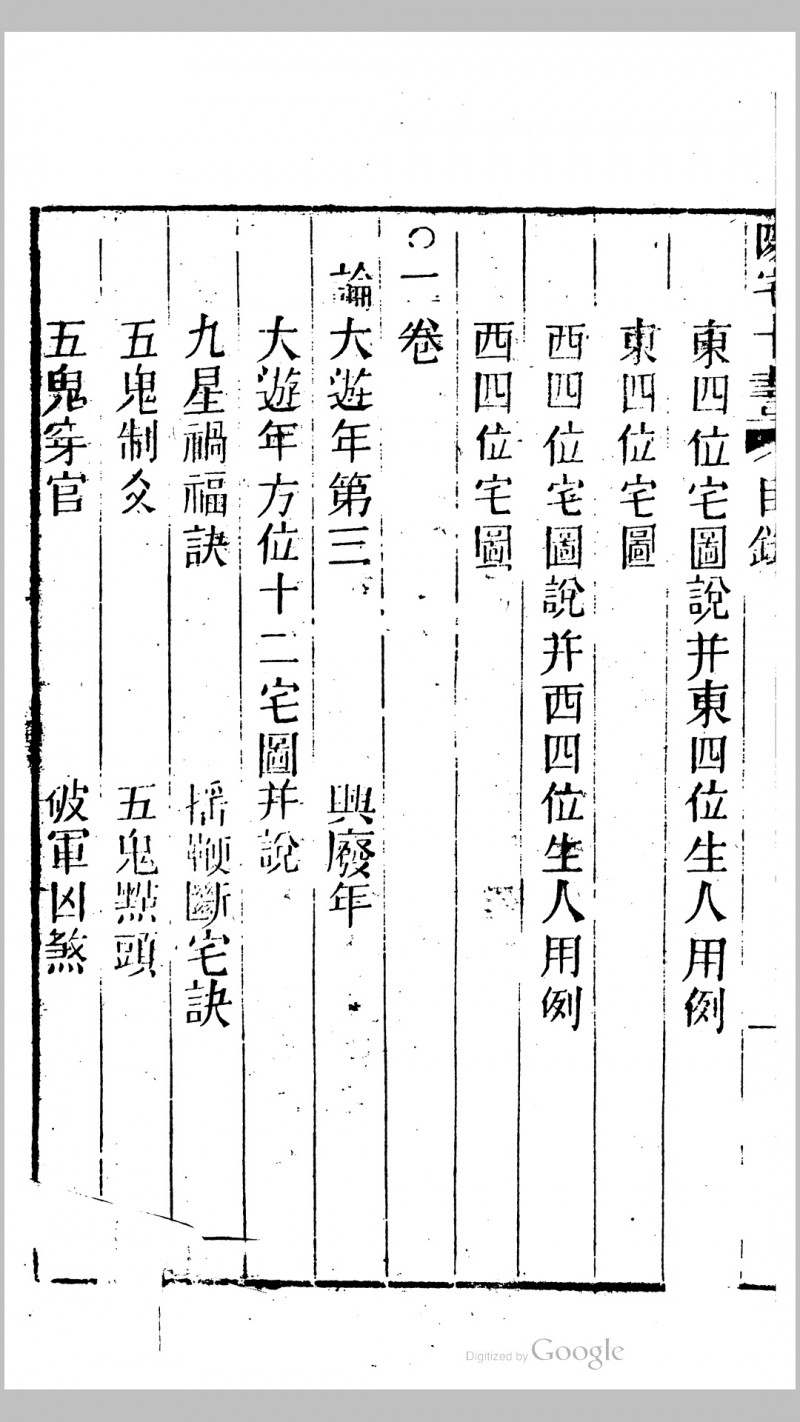 陽宅十書 目錄
東四位宅圖說并東四位生人用例
東四位宅圖
西四位宅圖說并西四位生人用例
西四位宅圖
○一卷
論大遊年第三 興廢年
大遊年方位十二宅圖并說
九星禍福訣 揺鞭斷宅訣
五鬼制爻 五鬼點頭
五鬼穿宫 破軍凶煞
Digitized by Google